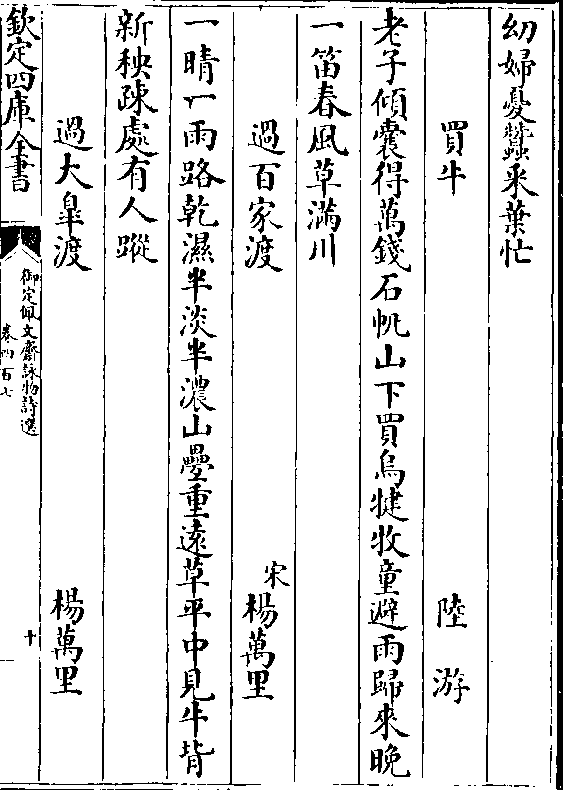 幼婦憂蠶采葉忙
買牛
陸游
老子傾囊得萬錢石帆山下買烏犍牧童避雨歸來晚
一笛春風草滿川
過百家渡
宋楊萬里
一晴一雨路乾濕半淡半濃山疊重遠草平中見牛背
新秧疎處有人蹤
過大臯渡
楊萬里
欽定四庫全書
御定佩文齋詠物詩選
卷四百七
十